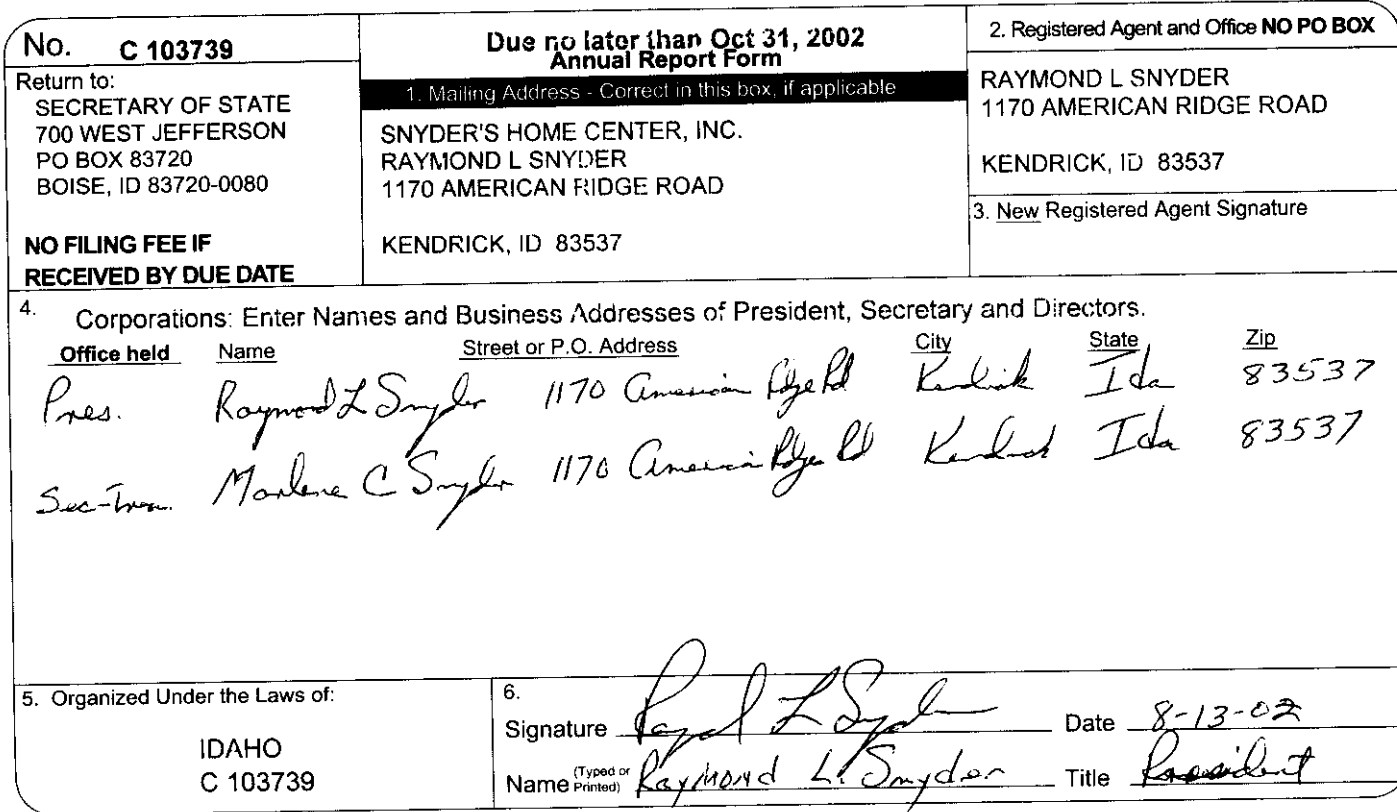 No. C 103739
Return to:
SECRETARY OF STATE
700 WEST JEFFERSON
PO BOX 83720
BOISE, ID 83720-0080
NO FILING FEE IF
RECEIVED BY DUE DATE
Due no later than Oct 31, 2002
Annual Report Form
1. Mailing Address - Correct in this box, if applicable
SNYDER'S HOME CENTER, INC.
RAYMOND L SNYDER
1170 AMERICAN RIDGE ROAD
KENDRICK, ID 83537
2. Registered Agent and Office NO PO BOX
RAYMOND L SNYDER
1170 AMERICAN RIDGE ROAD
KENDRICK, ID 83537
3. New Registered Agent Signature
4. Corporations: Enter Names and Business Addresses of President, Secretary and Directors.
Office held Name Street or P.O. Address City State Zip
Pres. Raymond L Snyder 1170 American Ridge Rd Kendrick Ida 83537
Sec-Treas. Marlene C Snyder 1170 American Ridge Rd Kendrick Ida 83537
5. Organized Under the Laws of:
IDAHO
C 103739
6.
Signature Raymond L Snyder Date 8-13-02
Name (Typed or Printed) Raymond L. Snyder Title President